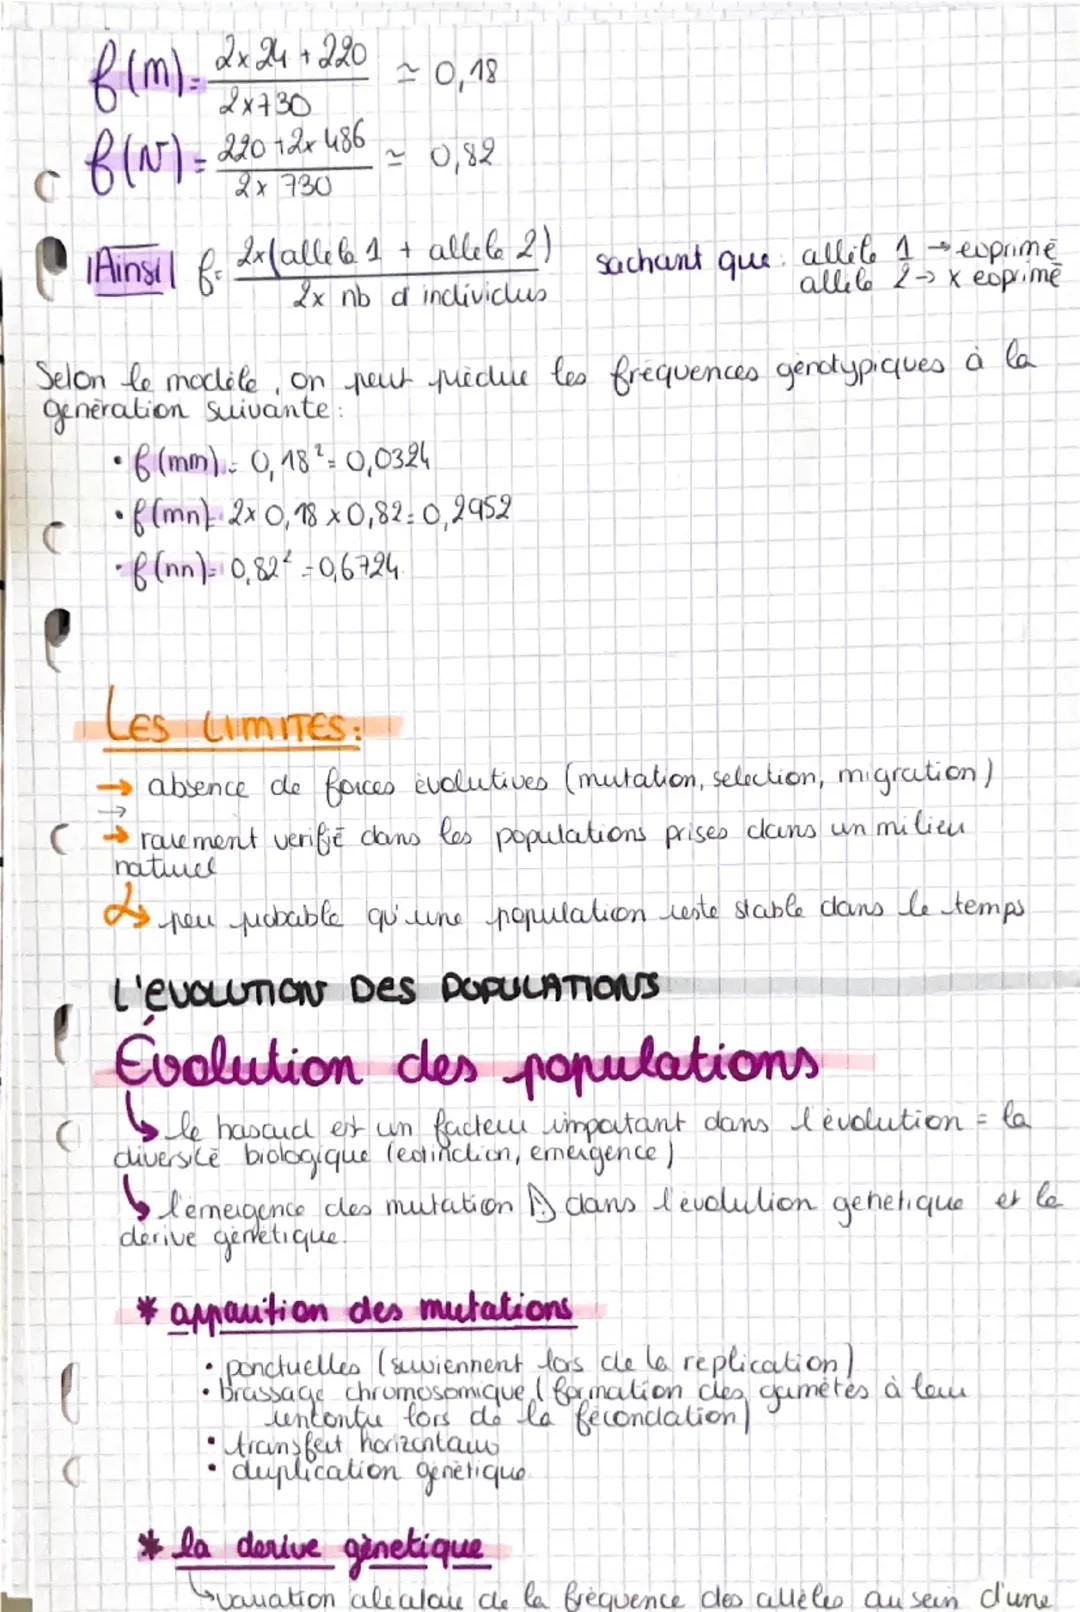 f(m) = (2 x 24 + 220) / (2 x 730) ≃ 0,18
f(N) = (220 + 2 x 486) / (2 x 730) ≃ 0,82
Ainsi f = 2x(allele 1 + allele 2) / 2x nb d individus sachant que : allèle 1 → exprimé
allèle 2 → x exprimé
Selon le modèle, on peut prédire les fréquences génotypiques à la
génération suivante :
• f(mm) = 0,18² = 0,0324
• f(mn) = 2x 0,18 x 0,82 = 0,2952
• f(nn) = 0,82² = 0,6724.
LES LIMITES :
→ absence de forces évolutives (mutation, selection, migration)
→
→ rarement verifié dans les populations prises dans un milieu
naturel
↳ peu probable qu'une population reste stable dans le temps
L'EVOLUTION DES POPULATIONS
Évolution des populations
↳ le hasard est un facteur important dans l'évolution = la
diversité biologique (extinction, emergence)
↳ l'émergence des mutation dans l'évolution genetique et le
derive génétique.
* apparition des mutations
• ponctuelles (surviennent lors de la replication)
• brassage chromosomique (formation des gamètes à leur
rencontre lors de la fécondation)
• transfert horizontaux
• duplication génétique.
* la derive génetique
↳ variation aléatoire de la fréquence des allèles au sein d'une